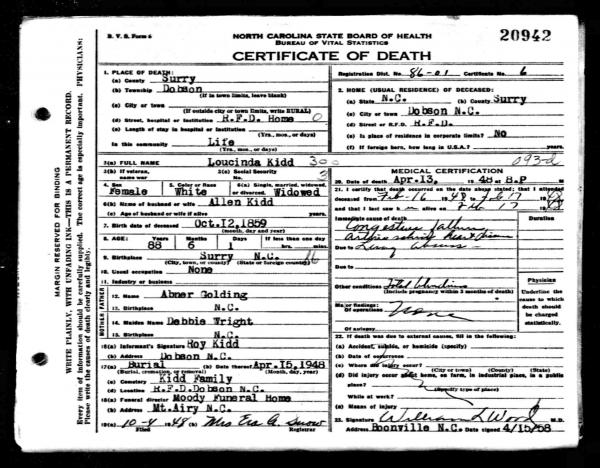 B. V. S. Form 6
NORTH CAROLINA STATE BOARD OF HEALTH
BUREAU OF VITAL STATISTICS
CERTIFICATE OF DEATH
20942
Registration Dist. No. 86-01 Certificate No. 6
MARGIN RESERVED FOR BINDING
WRITE PLAINLY, WITH UNFADING INK—THIS IS A PERMANENT RECORD.
Every item of information should be carefully supplied. The correct age is especially important. PHYSICIANS:
Please write the causes of death clearly and legibly.
1. PLACE OF DEATH:
(a) County Surry
(b) Township Dobson
(If in town limits, leave blank)
(c) City or town
(If outside city or town limits, write RURAL)
(d) Street, hospital or institution R.F.D. Home 0
(e) Length of stay in hospital or institution
(Yrs., mos., or days)
In this community Life
(Yrs., mos., or days)
2. HOME (USUAL RESIDENCE) OF DECEASED:
(a) State N.C. (b) County Surry
(c) City or town Dobson N.C.
(d) Street or R.F.D. R.F.D.
(e) Is place of residence in corporate limits? No
(f) If foreign born, how long in U.S.A.? years.
3(a) FULL NAME Loucinda Kidd
3(b) If veteran, name war
3(c) Social Security No.
4. Sex Female
5. Color or Race White
6(a) Single, married, widowed, or divorced. Widowed
6(b) Name of husband or wife Allen Kidd
6(c) Age of husband or wife if alive years.
7. Birth date of deceased Oct.12,1859
(month, day and year)
8. AGE: Years 88 Months 6 Days 1 If less than one day hrs. min.
9. Birthplace Surry N.C.
(City, town, county) (State or foreign county)
10. Usual occupation None
11. Industry or business
FATHER
12. Name Abner Golding
13. Birthplace N.C.
MOTHER
14. Maiden Name Debbie Wright
15. Birthplace N.C.
16(a) Informant's Signature Roy Kidd
(b) Address Dobson N.C.
17(a) Burial (b) Date thereof Apr.15,1948
(Burial, cremation, or removal) (Month, day, year)
(c) Cemetery Kidd Family
(d) Location R.F.D.Dobson N.C.
18(a) Funeral director Moody Funeral Home
(b) Address Mt.Airy N.C.
19(a) 10-4 1948 (b) Mrs Era A. Snow
Filed Registrar
093-d
MEDICAL CERTIFICATION
20. DATE OF DEATH: Apr.13, 1948 at 8.P M
21. I certify that death occurred on the date above stated; that I attended
deceased from Feb-16 1948 to Feb 17 1948
and that I last saw h alive on Feb 17 1948
Immediate cause of death Duration
Congestive failure
Due to
Due to
Other conditions Total blindness
(Include pregnancy within 3 months of death)
Major findings:
Of operations None
Of autopsy
Physician
Underline the cause to which death should be charged statistically.
22. If death was due to external causes, fill in the following:
(a) Accident, suicide, or homicide (specify)
(b) Date of occurrence
(c) Where did injury occur?
(d) Did injury occur about home, on farm, in industrial place, in a public place?
(Specify type of place)
While at work?
(e) Means of injury
23. Signature William L Wood M.D.
Address Boonville N.C. Date signed 4/15/58